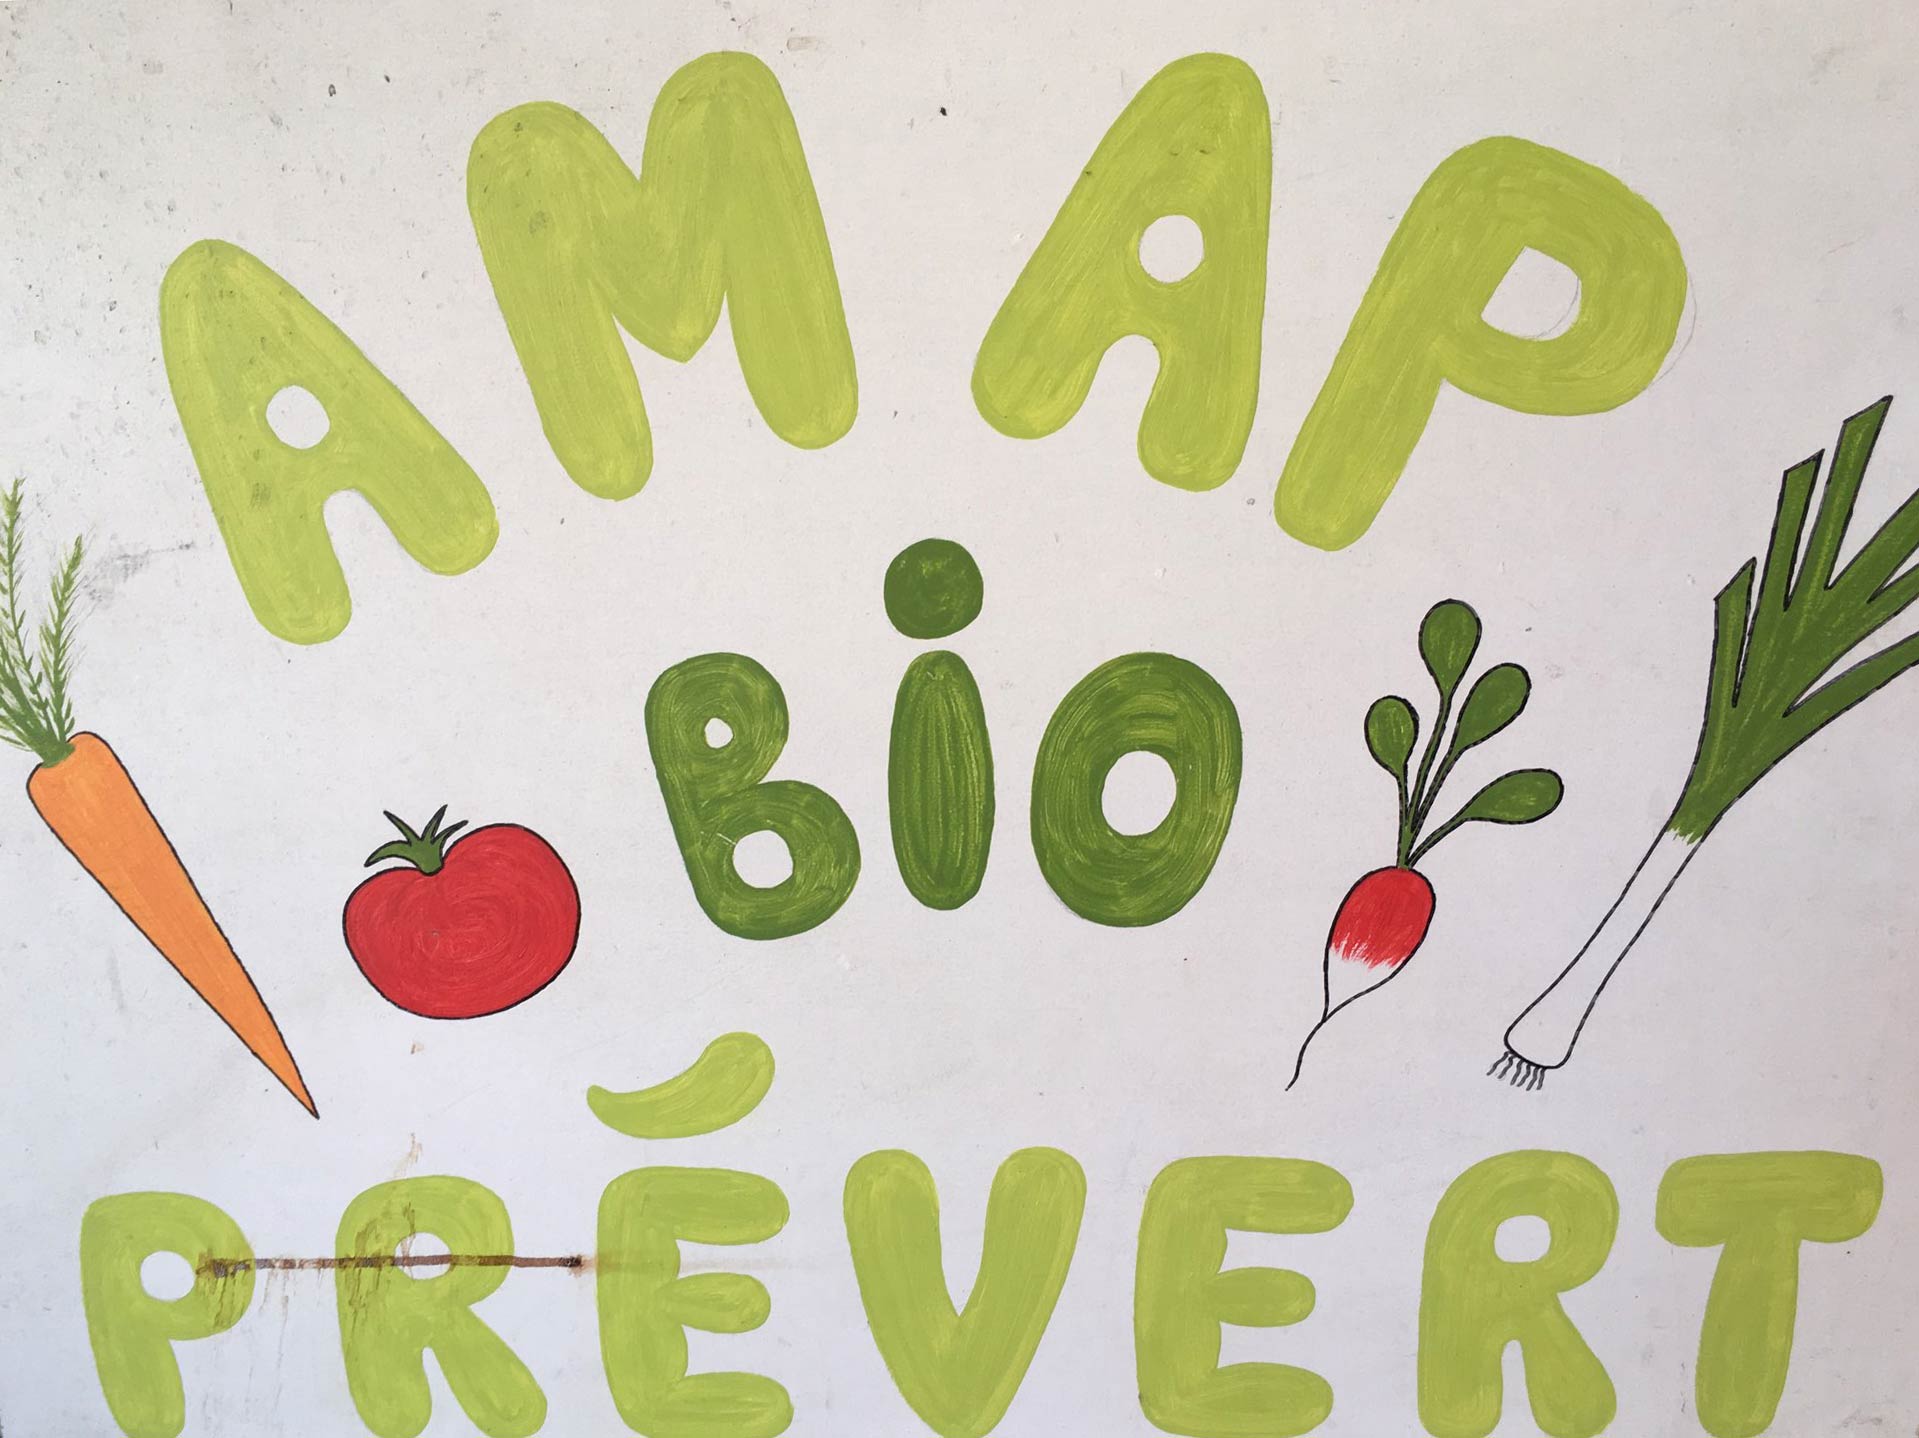 AMAP
BiO
PRÉVERT